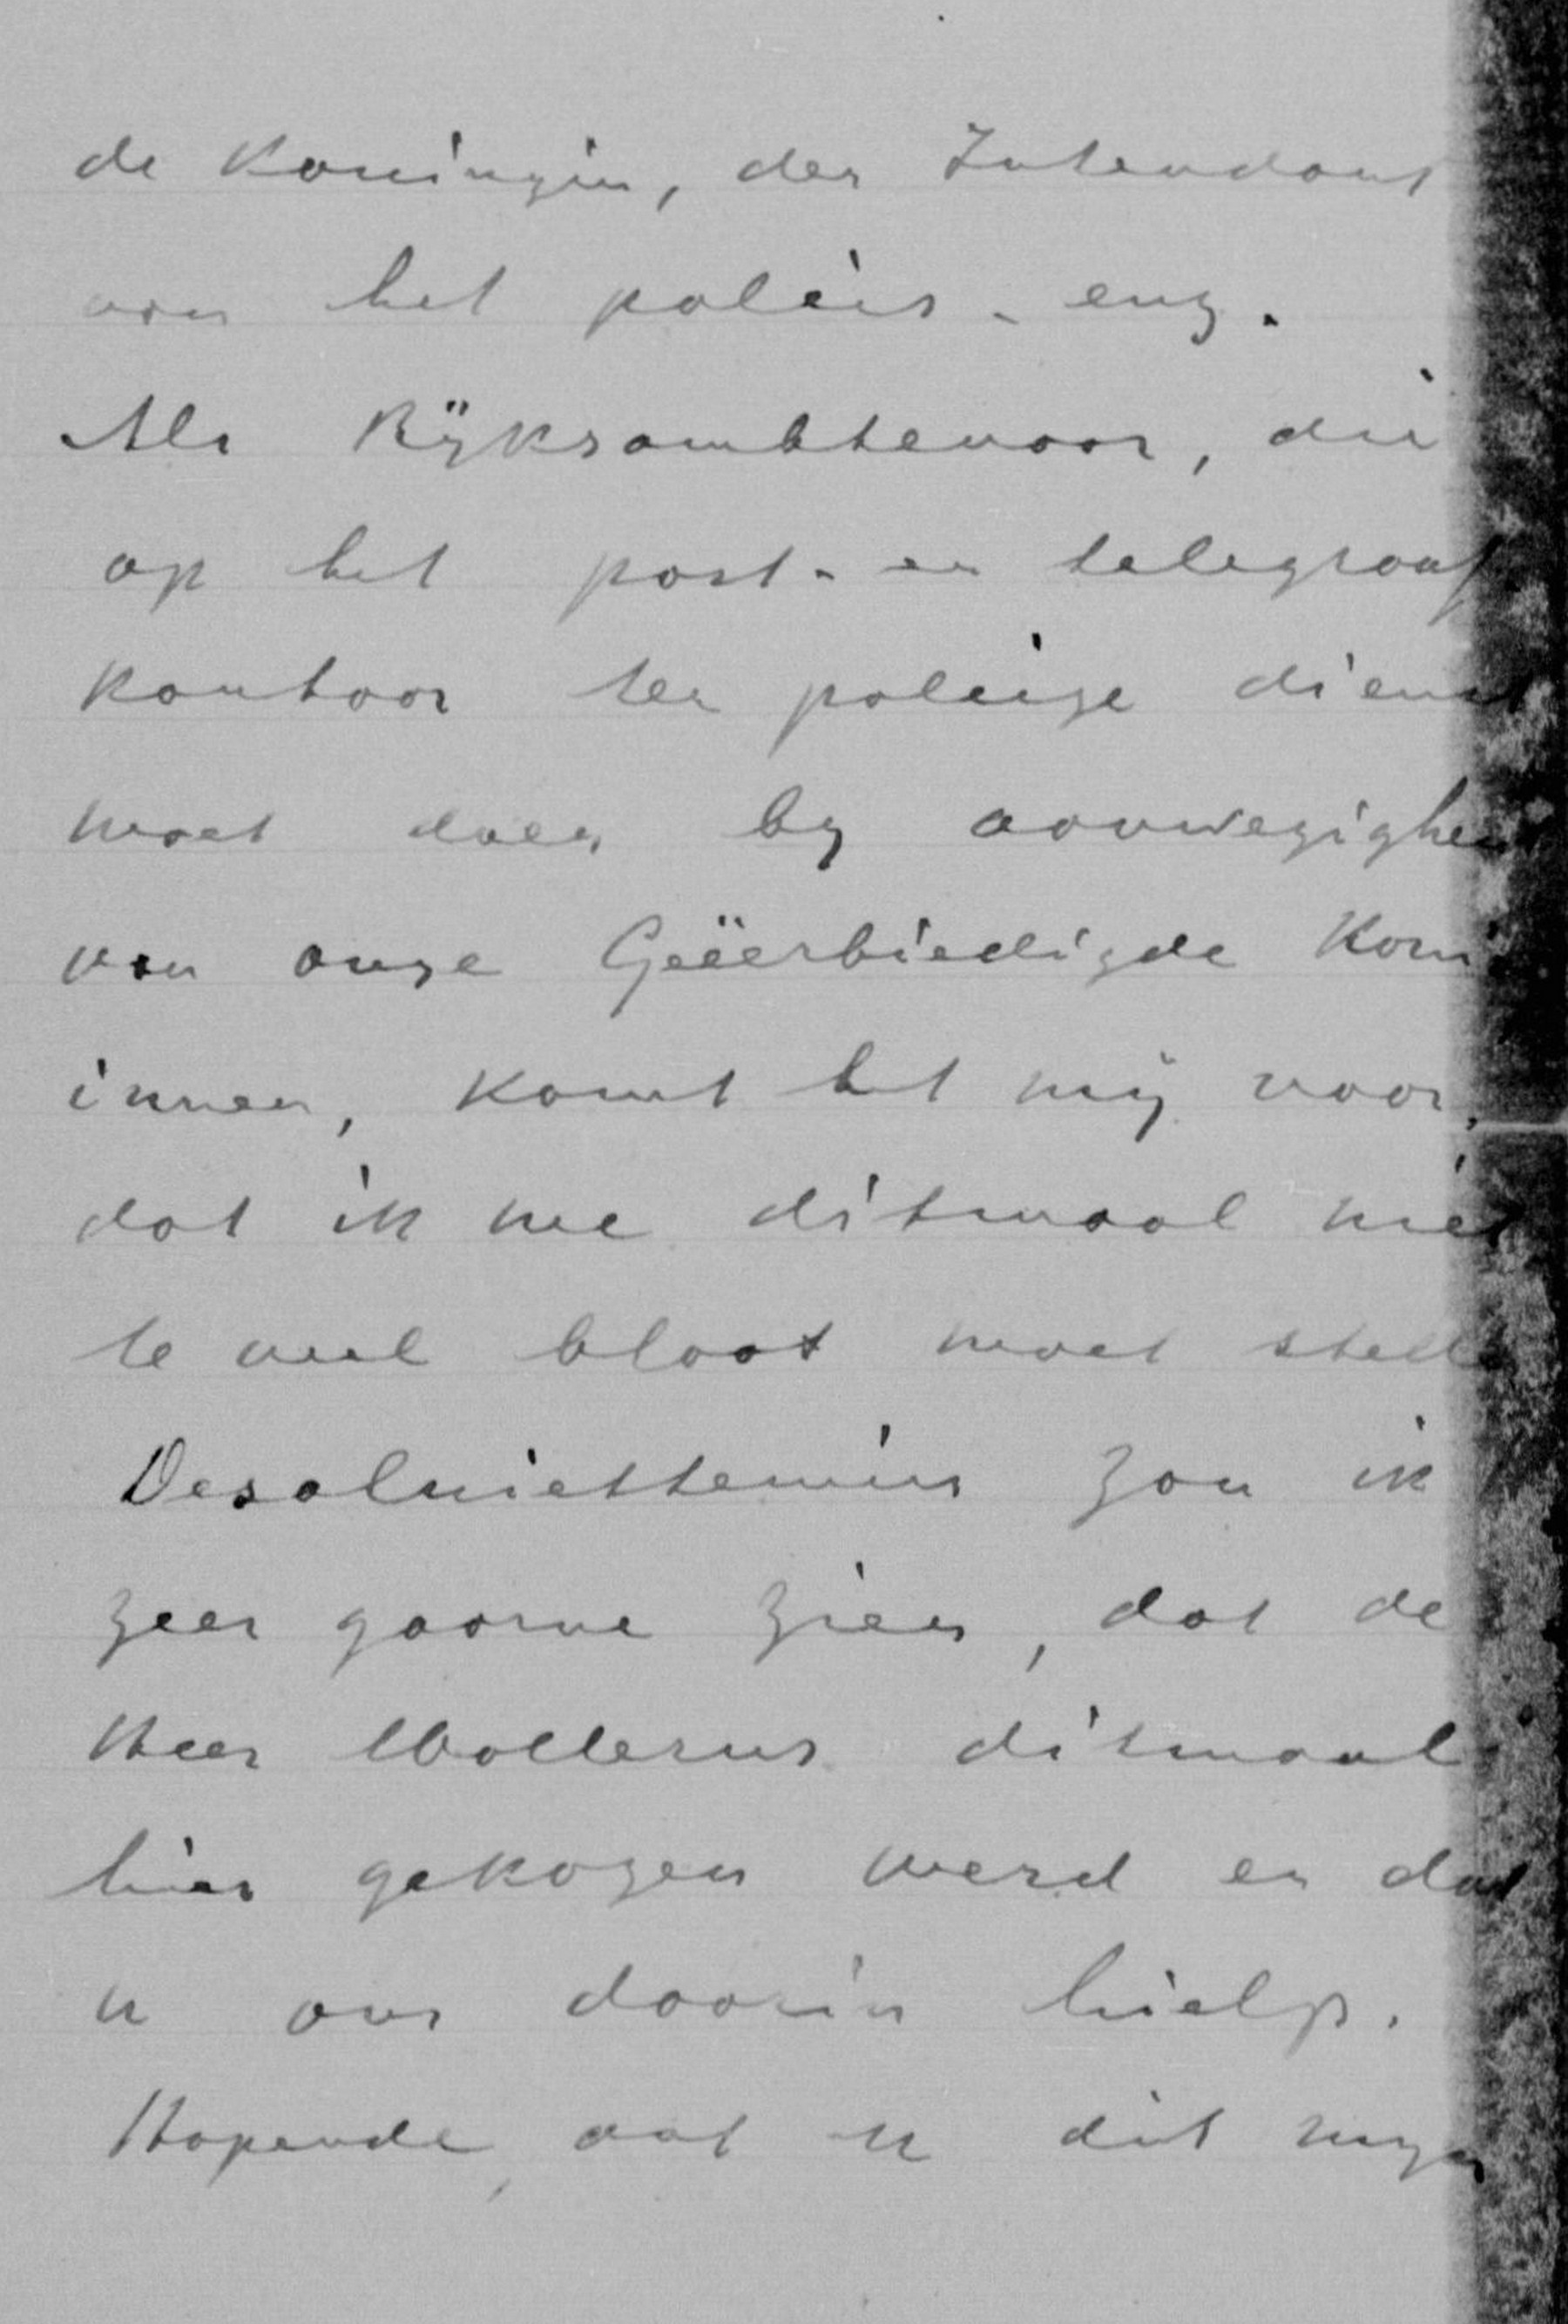 de Koningin, den Intendant
van het paleis - enz.
Als Rÿksambtenaar, die
op het post- en telegraaf
kantoor ten paleize dienst
moet doen by aanwezighei
van onze Geëerbiedigde Koni
innen, komt het mÿ voor,
dat ik me ditmaal niet
te veel bloot moet stelle
Desalniettemin zou ik
zeer gaarne zien, dat de
Heer Wollerus ditmaal
hier gekozen werd en dat
u ons daarin hielp.
Hopende, dat u dit myn